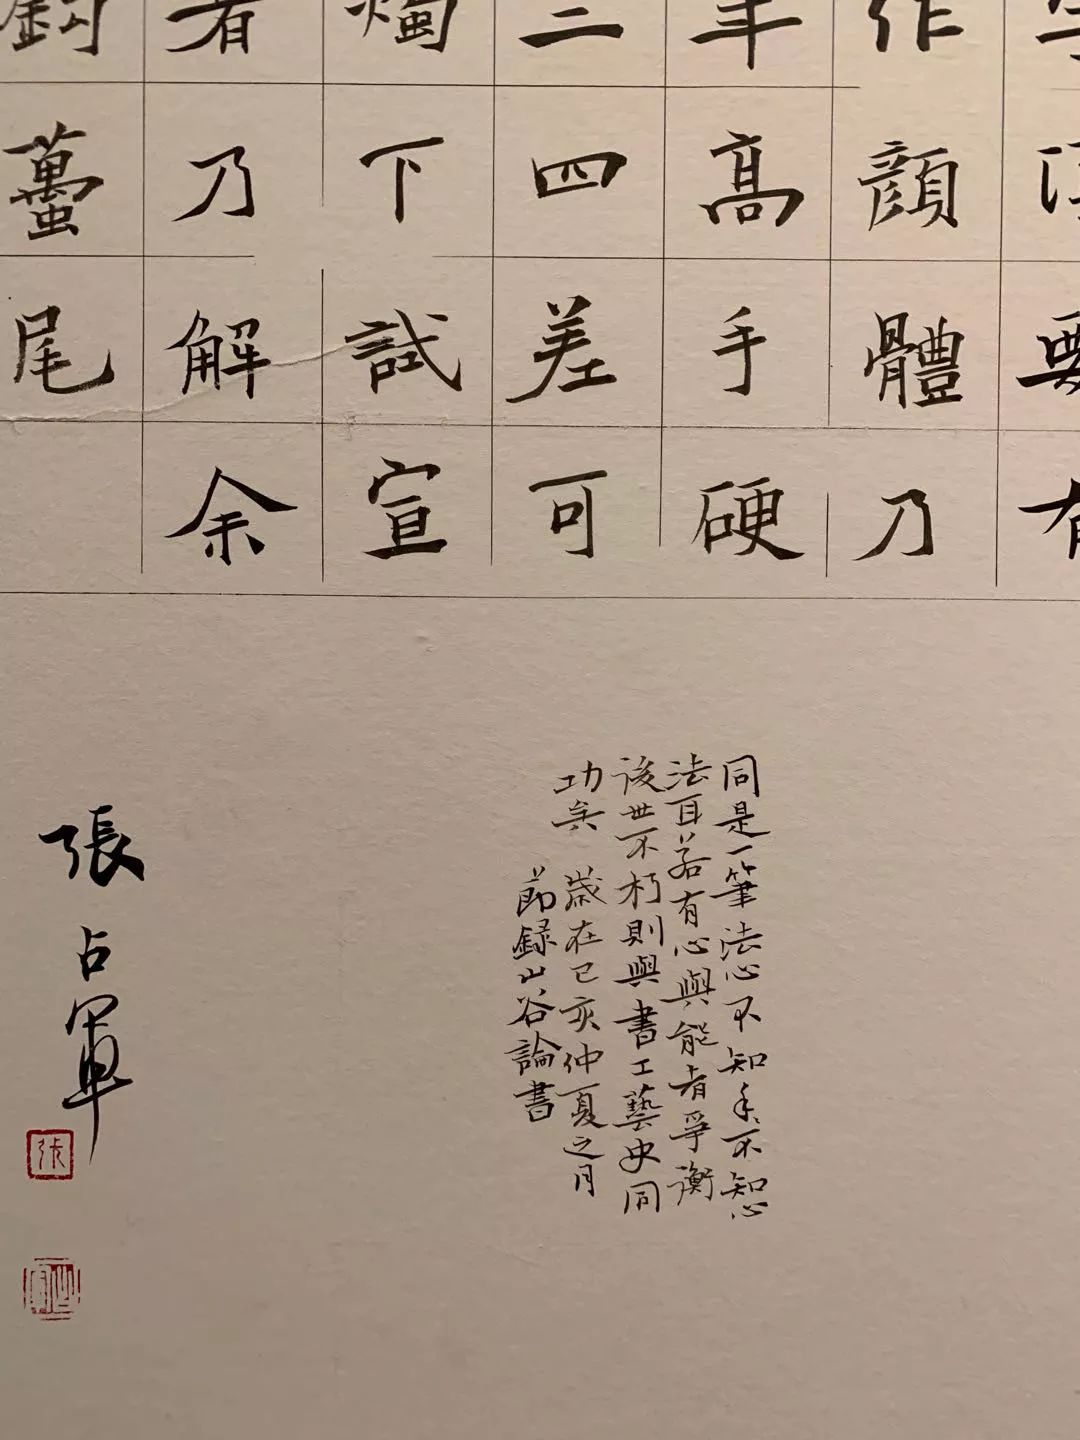 要有
作顔體乃
年高手硬
三四差可
燭下試宣
者乃解余
鈎蠆尾
同是一筆法心不知手〻不知心
法耳若有心與能者爭衡
後世不朽則與書工藝史同
功矣 歲在己亥仲夏之月
節録山谷論書
張占軍